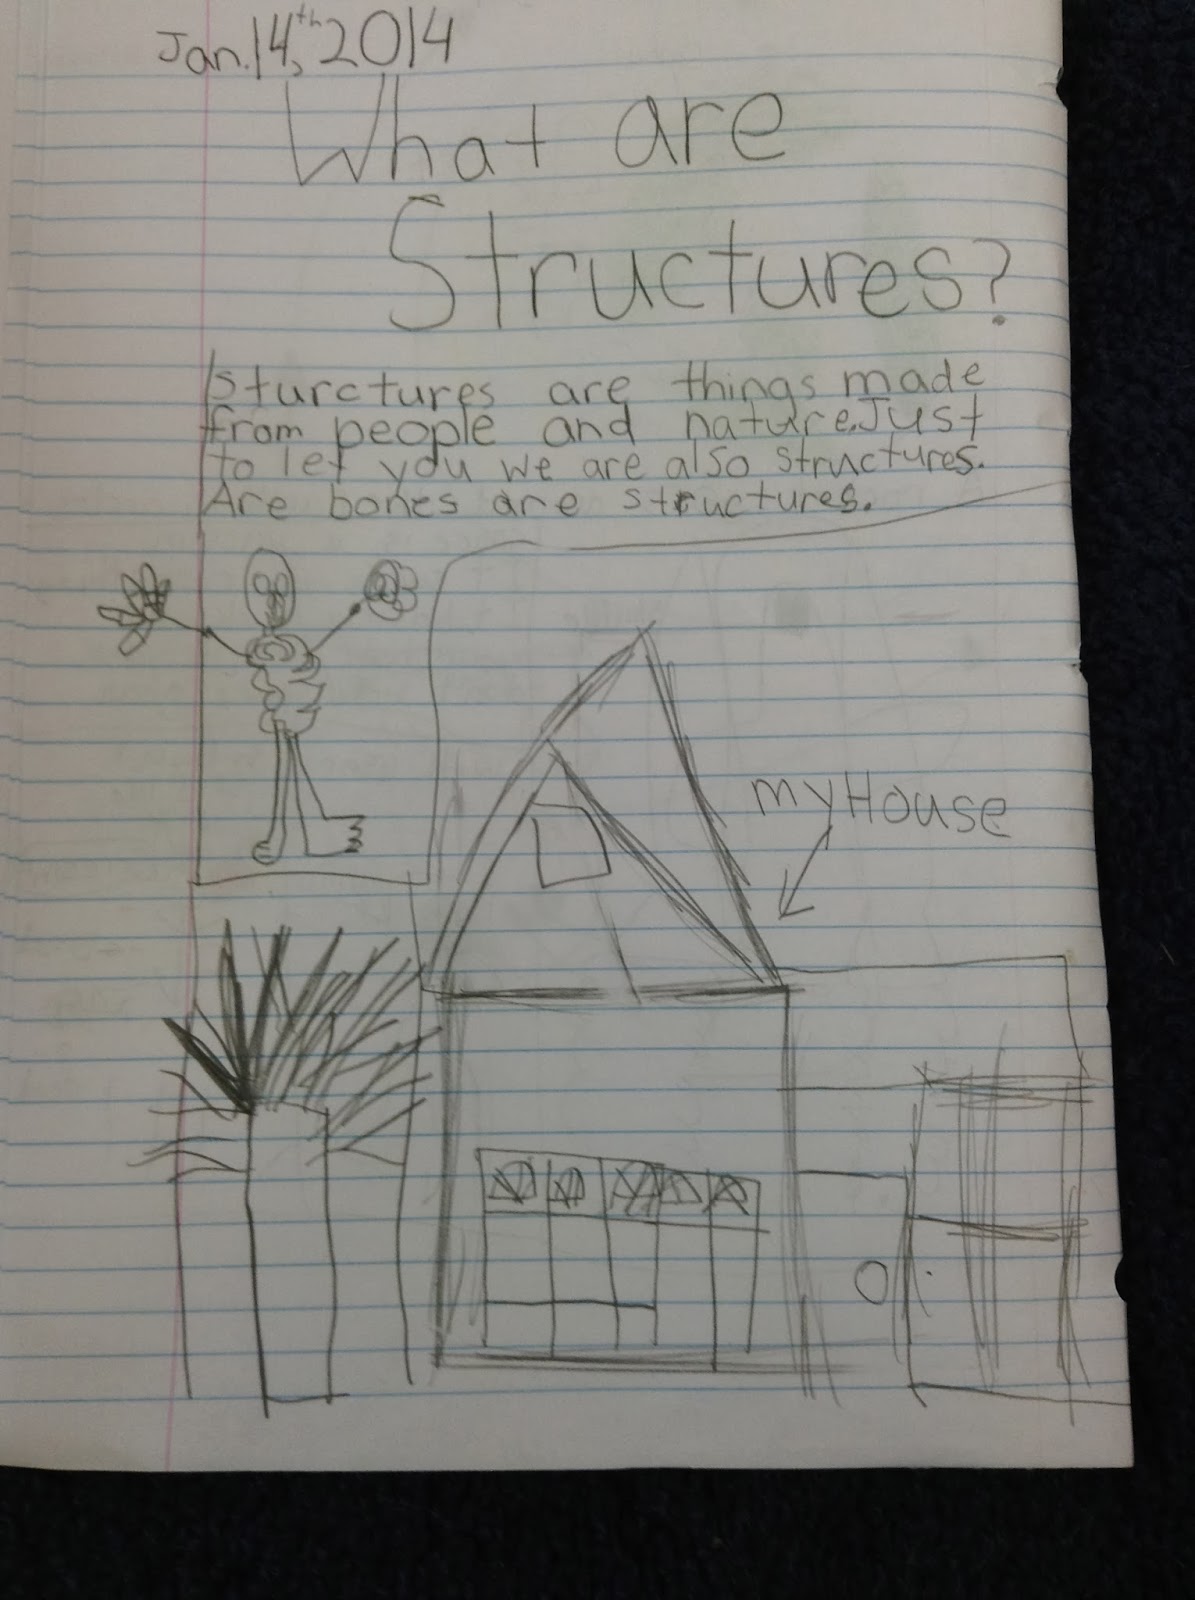 Jan. 14th, 2014
What are
Structures?
Sturctures are things made
from people and nature. Just
to let you we are also structures.
Are bones are structures.
my House